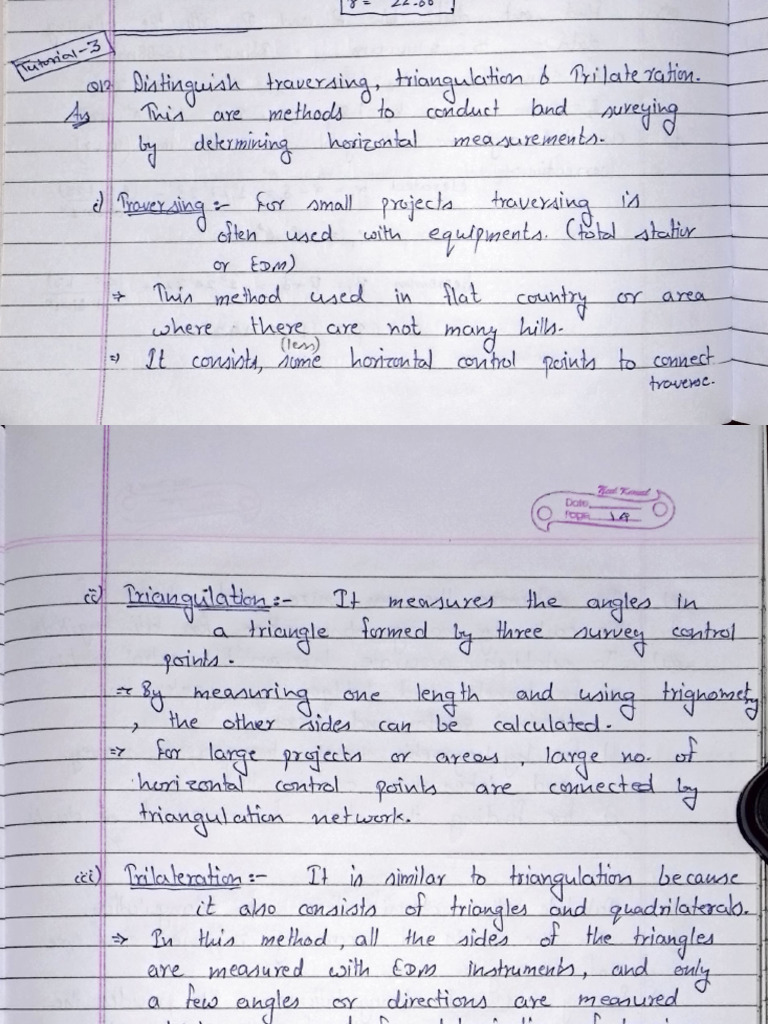 r = 22.00
Tutorial-3
Q1) Distinguish traversing, triangulation & Trilateration.
Ans This are methods to conduct land suveying
by determining horizontal measurements.
i) Traversing :- For small projects traversing is
often used with equipments. (total station
or EDM)
⇒ This method used in flat country or area
where there are not many hills.
(less)
⇒ It consists, some horizontal control points to connect
traverse.
Date
Page 18
ii) Triangulation :- It measures the angles in
a triangle formed by three survey control
points.
⇒ By measuring one length and using trignometry
, the other sides can be calculated.
⇒ For large projects or areas, large no. of
horizontal control points are connected by
triangulation network.
iii) Trilateration :- It is similar to triangulation because
it also consists of triangles and quadrilaterals.
⇒ In this method, all the sides of the triangles
are measured with EDM instruments, and only
a few angles or directions are measured